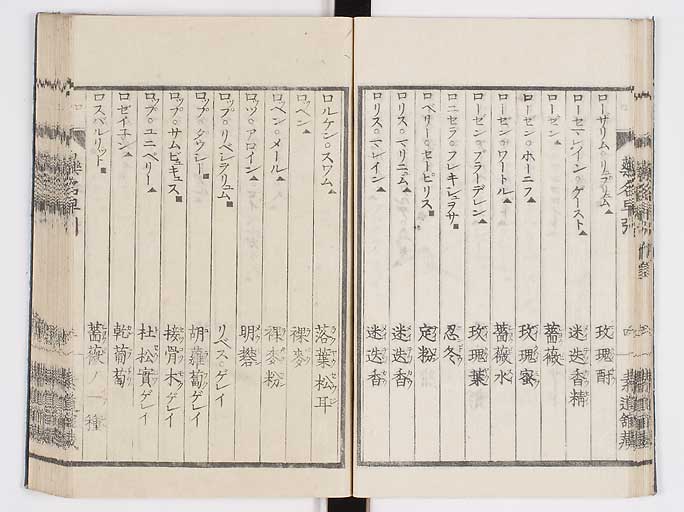 藥名早引
ローザリム、リデリュム▲ 玫瑰酎
ローセマレイン、ゲースト▲ 迷迭香精
ローゼン▲ 薔薇
ローゼン○ホーニフ▲ 玫瑰蜜
ローゼン○ワートル▲ 薔薇水
ローゼン○ブラーデレン▲ 玫瑰葉
ロニセラ○フレキシュヲサ■ 忍冬
ロベリー○セーピリス■ 定粉
ロリス○マリニュム▲ 迷迭香
ロリス○マレイン▲ 迷迭香
ロルケン○スワム▲ 落葉松耳
ロベン▲ 裸麥
ロベン○メール▲ 裸麥粉
ロッツ○アロイン▲ 明礬
ロップ○リベシヲリュム■ リベス○ゲレイ
ロップ○ダウシー■ 胡蘿蔔ゲレイ
ロップ○サムビュキュス■ 接骨木ゲレイ
ロップ○ユニベリー▲ 杜松實ゲレイ
ロゼイ子ン▲ 乾葡萄
ロスベルリット■ 薔薇ノ一種